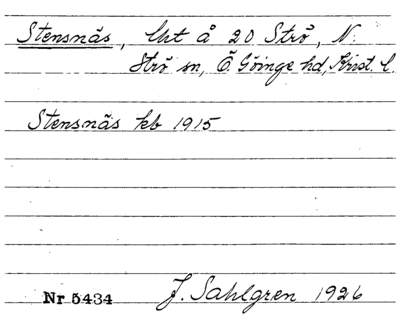 Stensnäs, lht å 20 Strö, N.
Strö sn, Ö. Göinge hd, Krist. l.
Stensnäs kb 1915
Nr 5434 J. Sahlgren 1926